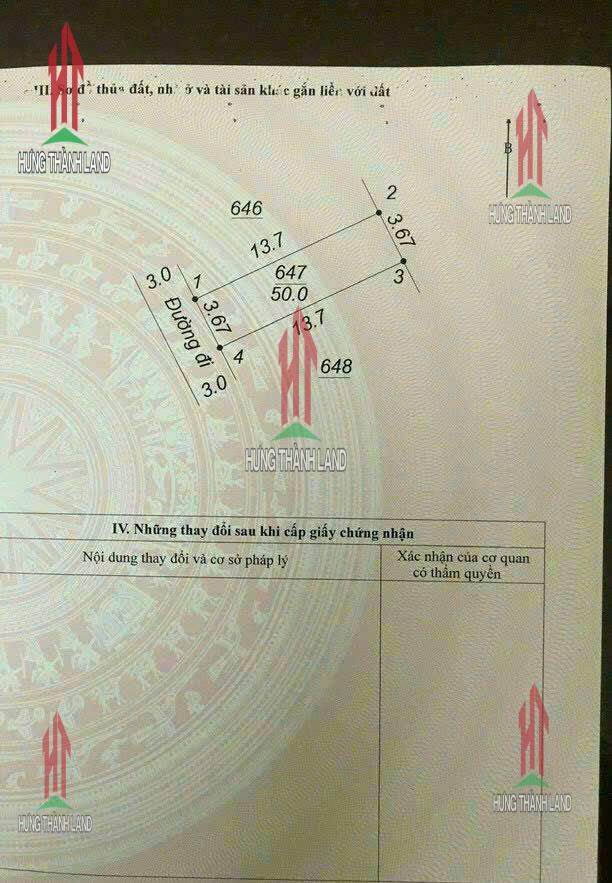 III. Sơ đồ thửa đất, nhà ở và tài sản khác gắn liền với đất
HT
HƯNG THÀNH LAND
B
HT
HƯNG THÀNH LAND
646
2
13.7
3.67
3.0
1
647
50.0
3
3.67
Đường đi
13.7
4
3.0
648
HT
HƯNG THÀNH LAND
IV. Những thay đổi sau khi cấp giấy chứng nhận
Nội dung thay đổi và cơ sở pháp lý
Xác nhận của cơ quan
có thẩm quyền
HT
HƯNG THÀNH LAND
HT
HƯNG THÀNH LAND